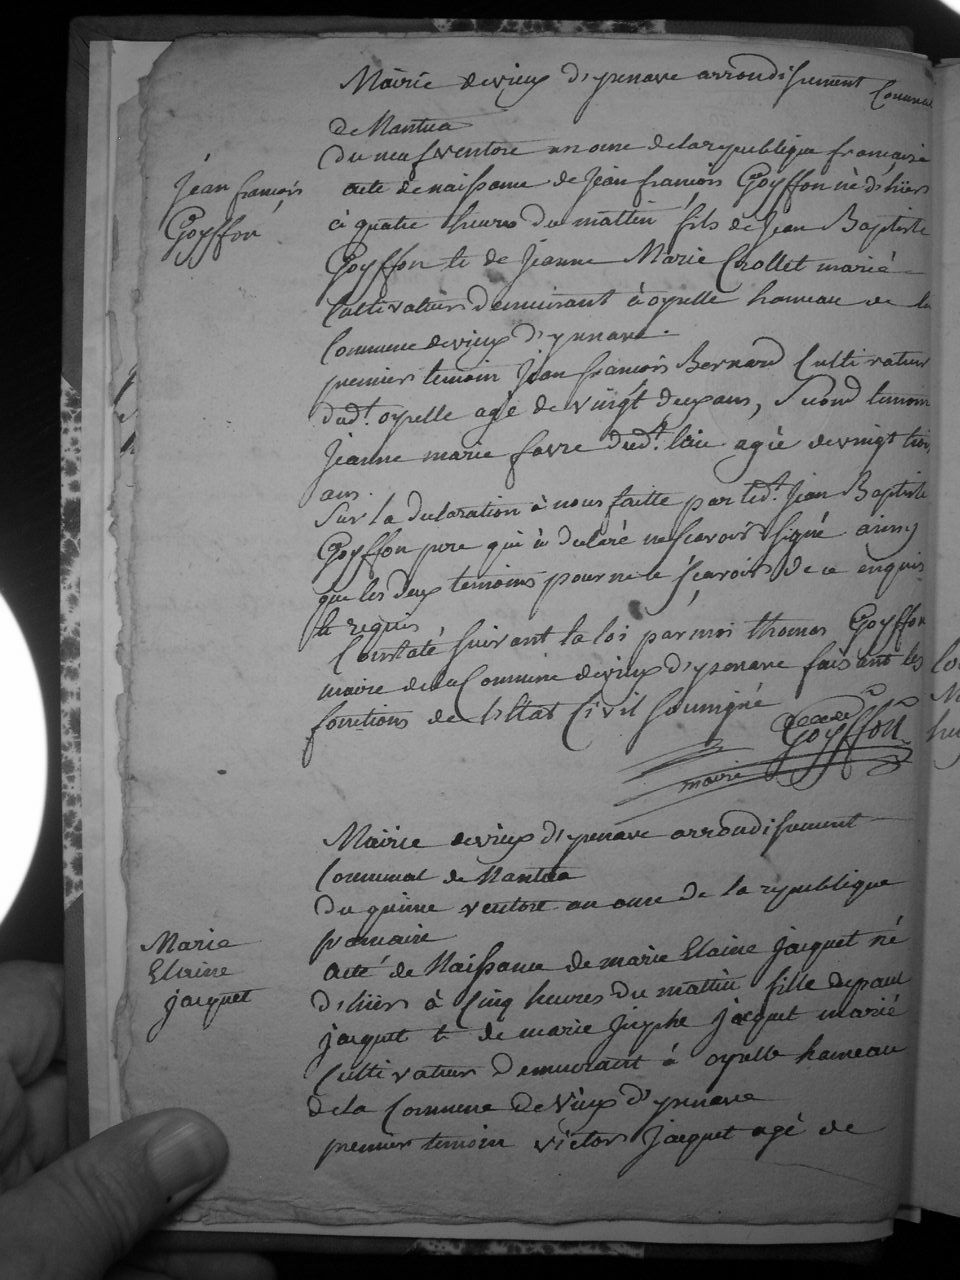 Mairie de vieux d'yzenave arrondissement Communal
de Nantua
du neuf ventose an onze de la republique francaise
jean francois
Goyffon
acte de naissance de Jean francois Goyffon né d'hier
à quatre heures du mattin fils de Jean Baptiste
Goyffon et de Jeanne Marie Crollet marié
Cultivateur demeurant à oyselle hameau de la
Commune de vieux d'yzenave.
premier temoin Jean francois Bernard Cultivateur
dudt. oyselle agé de vingt deux ans, second temoin
Jeanne marie favre dudt. lieu agée de vingt trois
ans.
Sur la declaration à nous faitte par ledt. Jean Baptiste
Goyffon pere qui a declaré ne scavoir signé ainsy
que les deux temoins pour ne le scavoir de ce enquis
et requis
Constaté suivant la loi par moi thomas Goyffon
maire de la Commune de vieux d'yzenave faisant les
fonctions de l'etat Civil soussigné
Goyffon
maire
Mairie de vieux d'yzenave arrondissement
Communal de Nantua
du quinze ventose an onze de la republique
francaise
Marie
Elaine
jacquet
acte de Naissance de marie Elaine jacquet né
d'hier à Cinq heures du mattin fille de paul
jacquet et de marie Josephe jacquet marié
Cultivateur demeurant à oyselle hameau
de la Commune de Vieux d'yzenave
premier temoin victor jacquet agé de